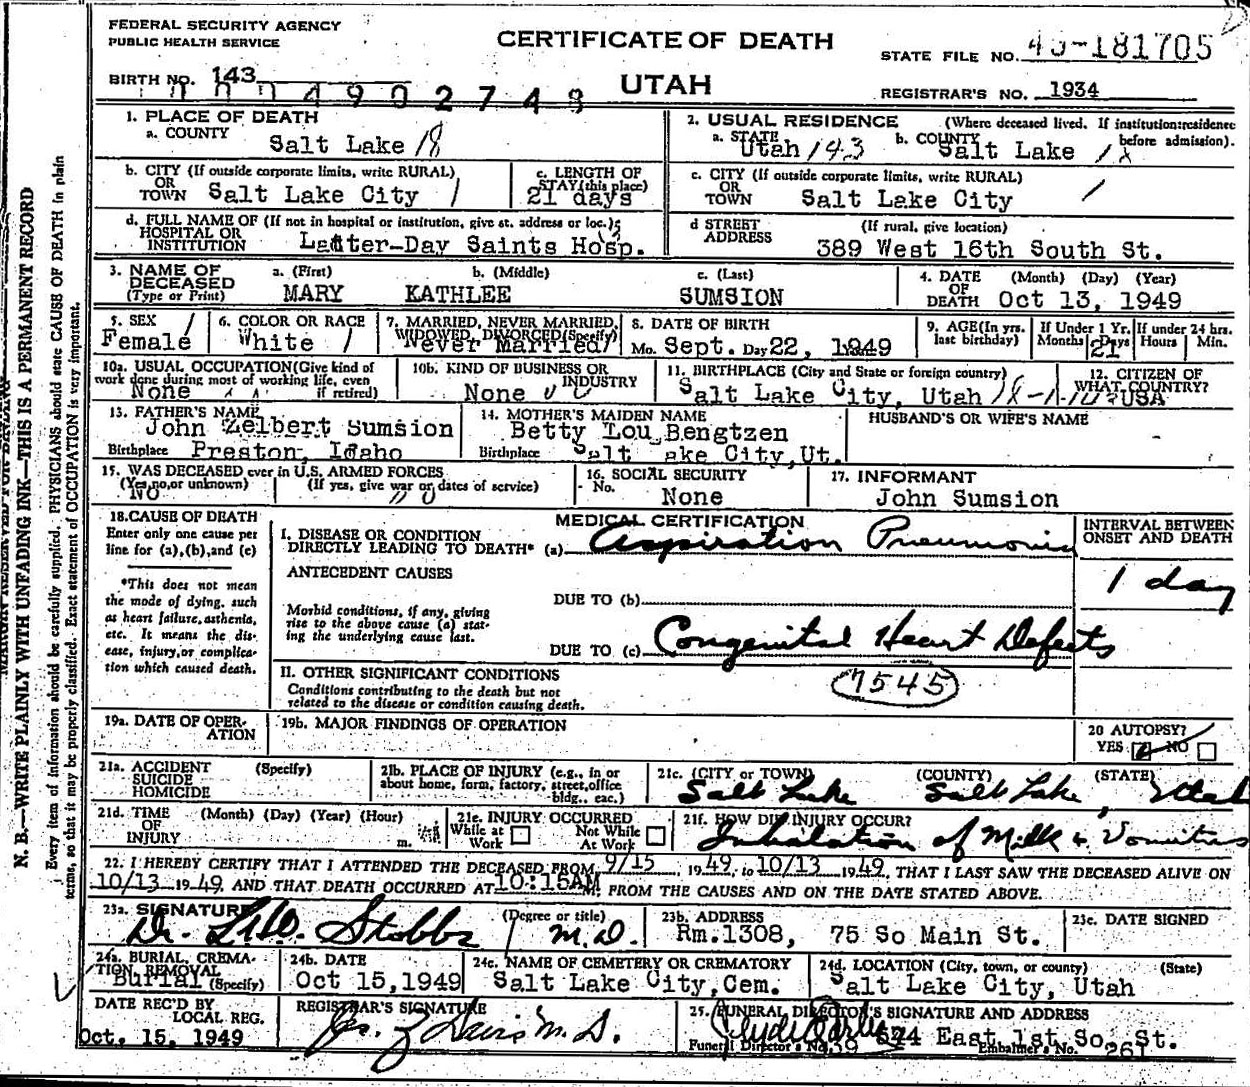 FEDERAL SECURITY AGENCY
PUBLIC HEALTH SERVICE
CERTIFICATE OF DEATH
UTAH
STATE FILE NO. 49-181705
BIRTH NO. 143
REGISTRAR'S NO. 1934
1. PLACE OF DEATH
a. COUNTY
Salt Lake 18
2. USUAL RESIDENCE (Where deceased lived. If institution: residence before admission).
a. STATE Utah 143 b. COUNTY Salt Lake 18
b. CITY (If outside corporate limits, write RURAL)
OR
TOWN Salt Lake City 1
c. LENGTH OF
STAY (this place)
21 days
c. CITY (If outside corporate limits, write RURAL)
OR
TOWN Salt Lake City /
d. FULL NAME OF (If not in hospital or institution, give st. address or loc.)
HOSPITAL OR
INSTITUTION Latter-Day Saints Hosp.
d STREET
ADDRESS
(If rural, give location)
389 West 16th South St.
3. NAME OF
DECEASED
(Type or Print)
a. (First) b. (Middle) c. (Last)
MARY KATHLEE SUMSION
4. DATE
OF
DEATH
(Month) (Day) (Year)
Oct 13, 1949
5. SEX
Female
6. COLOR OR RACE
White
7. MARRIED, NEVER MARRIED,
WIDOWED, DIVORCED (Specify)
Never Married
8. DATE OF BIRTH
Mo. Sept. Day 22, Year 1949
9. AGE (In yrs.
last birthday)
If Under 1 Yr.
Months Days
21
If under 24 hrs.
Hours Min.
10a. USUAL OCCUPATION (Give kind of
work done during most of working life, even
if retired)
None
10b. KIND OF BUSINESS OR
INDUSTRY
None
11. BIRTHPLACE (City and State or foreign country)
Salt Lake City, Utah
12. CITIZEN OF
WHAT COUNTRY?
USA
13. FATHER'S NAME
John Zelbert Sumsion
Birthplace Preston, Idaho
14. MOTHER'S MAIDEN NAME
Betty Lou Bengtzen
Birthplace Salt Lake City, Ut.
HUSBAND'S OR WIFE'S NAME
-
15. WAS DECEASED ever in U.S. ARMED FORCES
(Yes, no, or unknown) (If yes, give war or dates of service)
No no
16. SOCIAL SECURITY
No.
None
17. INFORMANT
John Sumsion
18. CAUSE OF DEATH
Enter only one cause per
line for (a), (b), and (c)
*This does not mean
the mode of dying, such
as heart failure, asthenia,
etc. It means the dis-
ease, injury, or complica-
tion which caused death.
MEDICAL CERTIFICATION
I. DISEASE OR CONDITION
DIRECTLY LEADING TO DEATH* (a) Aspiration Pneumonia
INTERVAL BETWEEN
ONSET AND DEATH
1 day
ANTECEDENT CAUSES
Morbid conditions, if any, giving
rise to the above cause (a) stat-
ing the underlying cause last.
DUE TO (b)
DUE TO (c) Congenital Heart Defects
II. OTHER SIGNIFICANT CONDITIONS
Conditions contributing to the death but not
related to the disease or condition causing death.
7545
19a. DATE OF OPER-
ATION
19b. MAJOR FINDINGS OF OPERATION
20 AUTOPSY?
YES NO
21a. ACCIDENT (Specify)
SUICIDE
HOMICIDE
21b. PLACE OF INJURY (e.g., in or
about home, form, factory, street, office
bldg., eac.)
21c. (CITY or TOWN) (COUNTY) (STATE)
Salt Lake Salt Lake, Utah
21d. TIME (Month) (Day) (Year) (Hour)
OF
INJURY m.
21e. INJURY OCCURRED
While at Work
Not While At Work
21f. HOW DID INJURY OCCUR?
Inhalation of Milk & Vomitus
22. I HEREBY CERTIFY THAT I ATTENDED THE DECEASED FROM 9/15, 1949, to 10/13 1949, THAT I LAST SAW THE DECEASED ALIVE ON
10/13 1949, AND THAT DEATH OCCURRED AT 10:15AM M, FROM THE CAUSES AND ON THE DATE STATED ABOVE.
23a. SIGNATURE (Degree or title)
Stobbs M.D.
23b. ADDRESS
Rm.1308, 75 So Main St.
23c. DATE SIGNED
24a. BURIAL, CREMA-
TION, REMOVAL
Burial (Specify)
24b. DATE
Oct 15,1949
24c. NAME OF CEMETERY OR CREMATORY
Salt Lake City, Cem.
24d. LOCATION (City, town, or county) (State)
Salt Lake City, Utah
DATE REC'D BY
LOCAL REG.
Oct. 15, 1949
REGISTRAR'S SIGNATURE
25. FUNERAL DIRECTOR'S SIGNATURE AND ADDRESS
574 East 1st So. St.
Funeral Director's No. 39 Embalmer's No. 261
N. B.—WRITE PLAINLY WITH UNFADING INK—THIS IS A PERMANENT RECORD
Every item of information should be carefully supplied. PHYSICIANS should state CAUSE OF DEATH in plain
terms, so that it may be properly classified. Exact statement of OCCUPATION is very important.